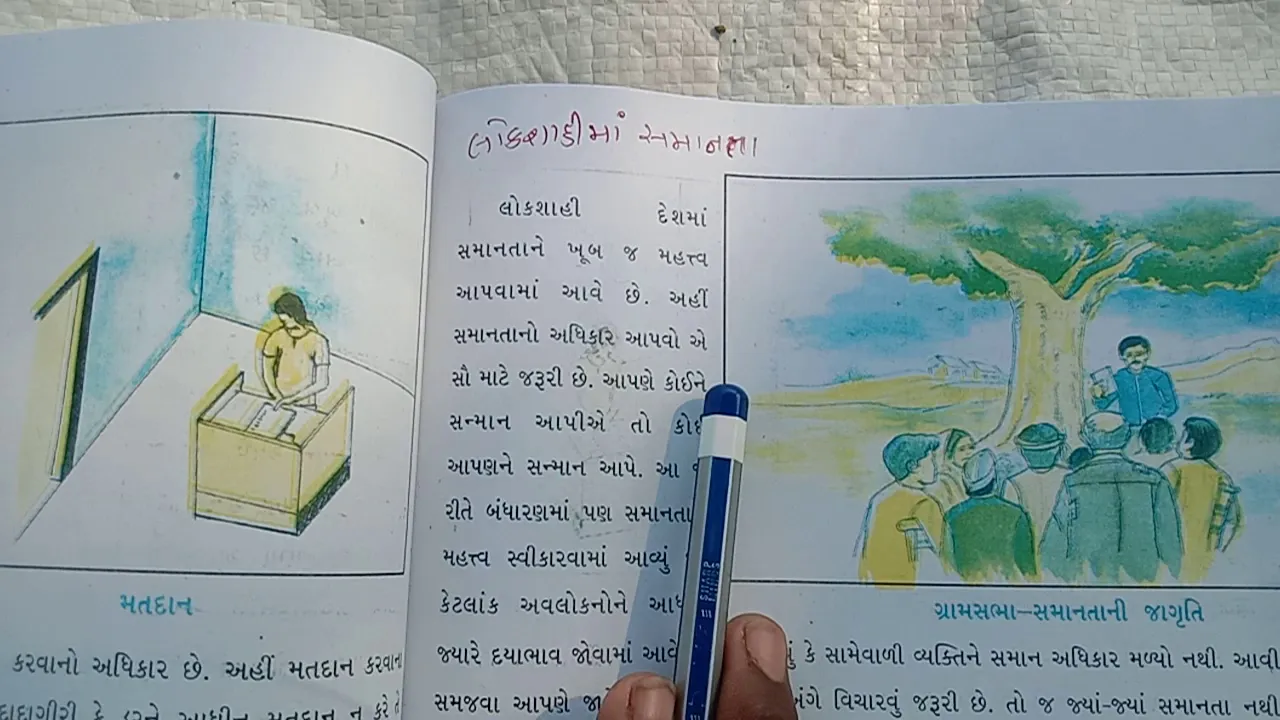 લોકશાહીમાં સમાનતા
લોકશાહી દેશમાં
સમાનતાને ખૂબ જ મહત્ત્વ
આપવામાં આવે છે. અહીં
સમાનતાનો અધિકાર આપવો એ
સૌ માટે જરૂરી છે. આપણે કોઈને
સન્માન આપીએ તો
આપણને સન્માન આપે. આ
રીતે બંધારણમાં પણ સમાનતા
મહત્ત્વ સ્વીકારવામાં આવ્યું
કેટલાંક અવલોકનોને
જ્યારે દયાભાવ જોવામાં આવે કે સામેવાળી વ્યક્તિને સમાન અધિકાર મળ્યો નથી. આવી
સમજવા આપણે વિચારવું જરૂરી છે. તો જ જ્યાં-જ્યાં સમાનતા નથી
ગ્રામસભા-સમાનતાની જાગૃતિ
મતદાન
કરવાનો અધિકાર છે. અહીં મતદાન કરવાના